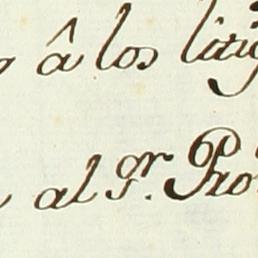 â los litig
al gr. Pro